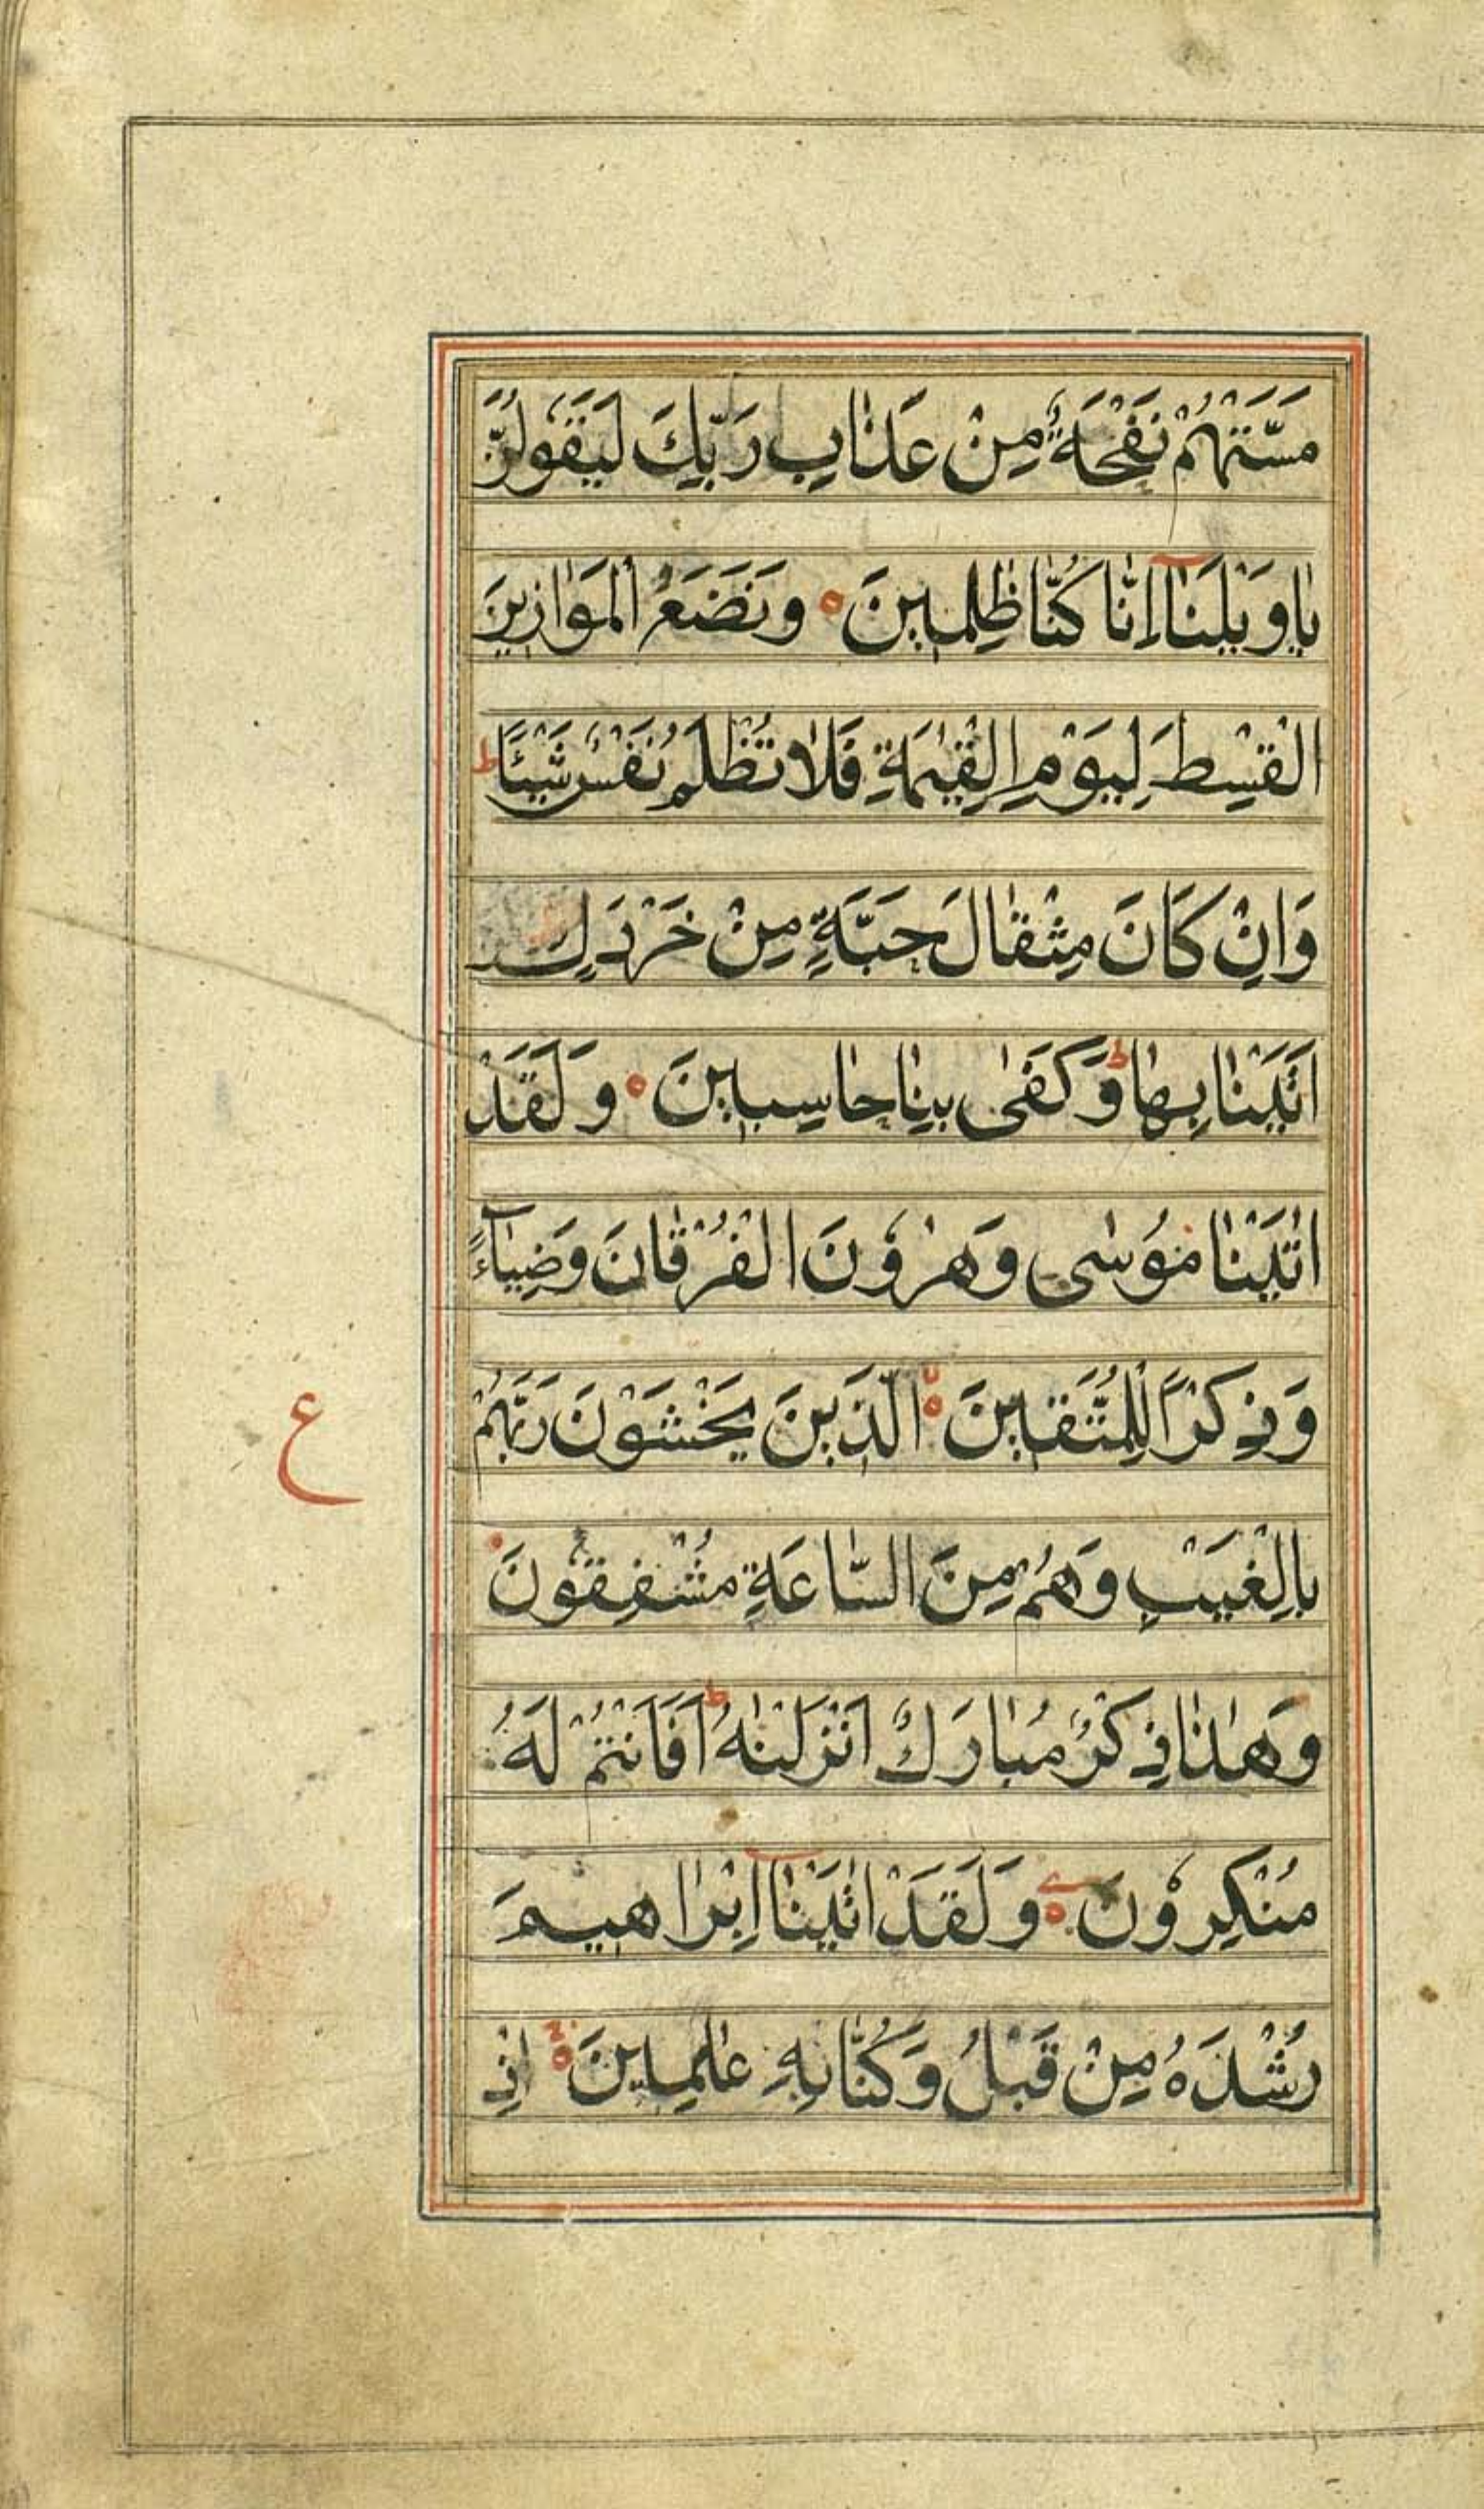 مَسَّتْهُمْ نَفْحَةٌ مِنْ عَذَابِ رَبِّكَ لَيَقُولُنَّ
يَاوَيْلَنَا اِنَّا كُنَّا ظٰلِمِينَ وَنَضَعُ الْمَوَازِينَ
الْقِسْطَ لِيَوْمِ الْقِيٰمَةِ فَلَا تُظْلَمُ نَفْسٌ شَيْئًا ط
وَاِنْ كَانَ مِثْقَالَ حَبَّةٍ مِنْ خَرْدَلٍ
اَتَيْنَا بِهَا ط وَكَفٰى بِنَا حَاسِبِينَ وَلَقَدْ
اٰتَيْنَا مُوسٰى وَهٰرُونَ الْفُرْقَانَ وَضِيَاءً
وَذِكْرًا لِلْمُتَّقِينَ الَّذِينَ يَخْشَوْنَ رَبَّهُمْ
ع
بِالْغَيْبِ وَهُمْ مِنَ السَّاعَةِ مُشْفِقُونَ
وَهٰذَا ذِكْرٌ مُبَارَكٌ اَنْزَلْنٰهُ ط اَفَاَنْتُمْ لَهُ
مُنْكِرُونَ وَلَقَدْ اٰتَيْنَا اِبْرَاهِيمَ
رُشْدَهُ مِنْ قَبْلُ وَكُنَّا بِهِ عٰلِمِينَ اِذْ